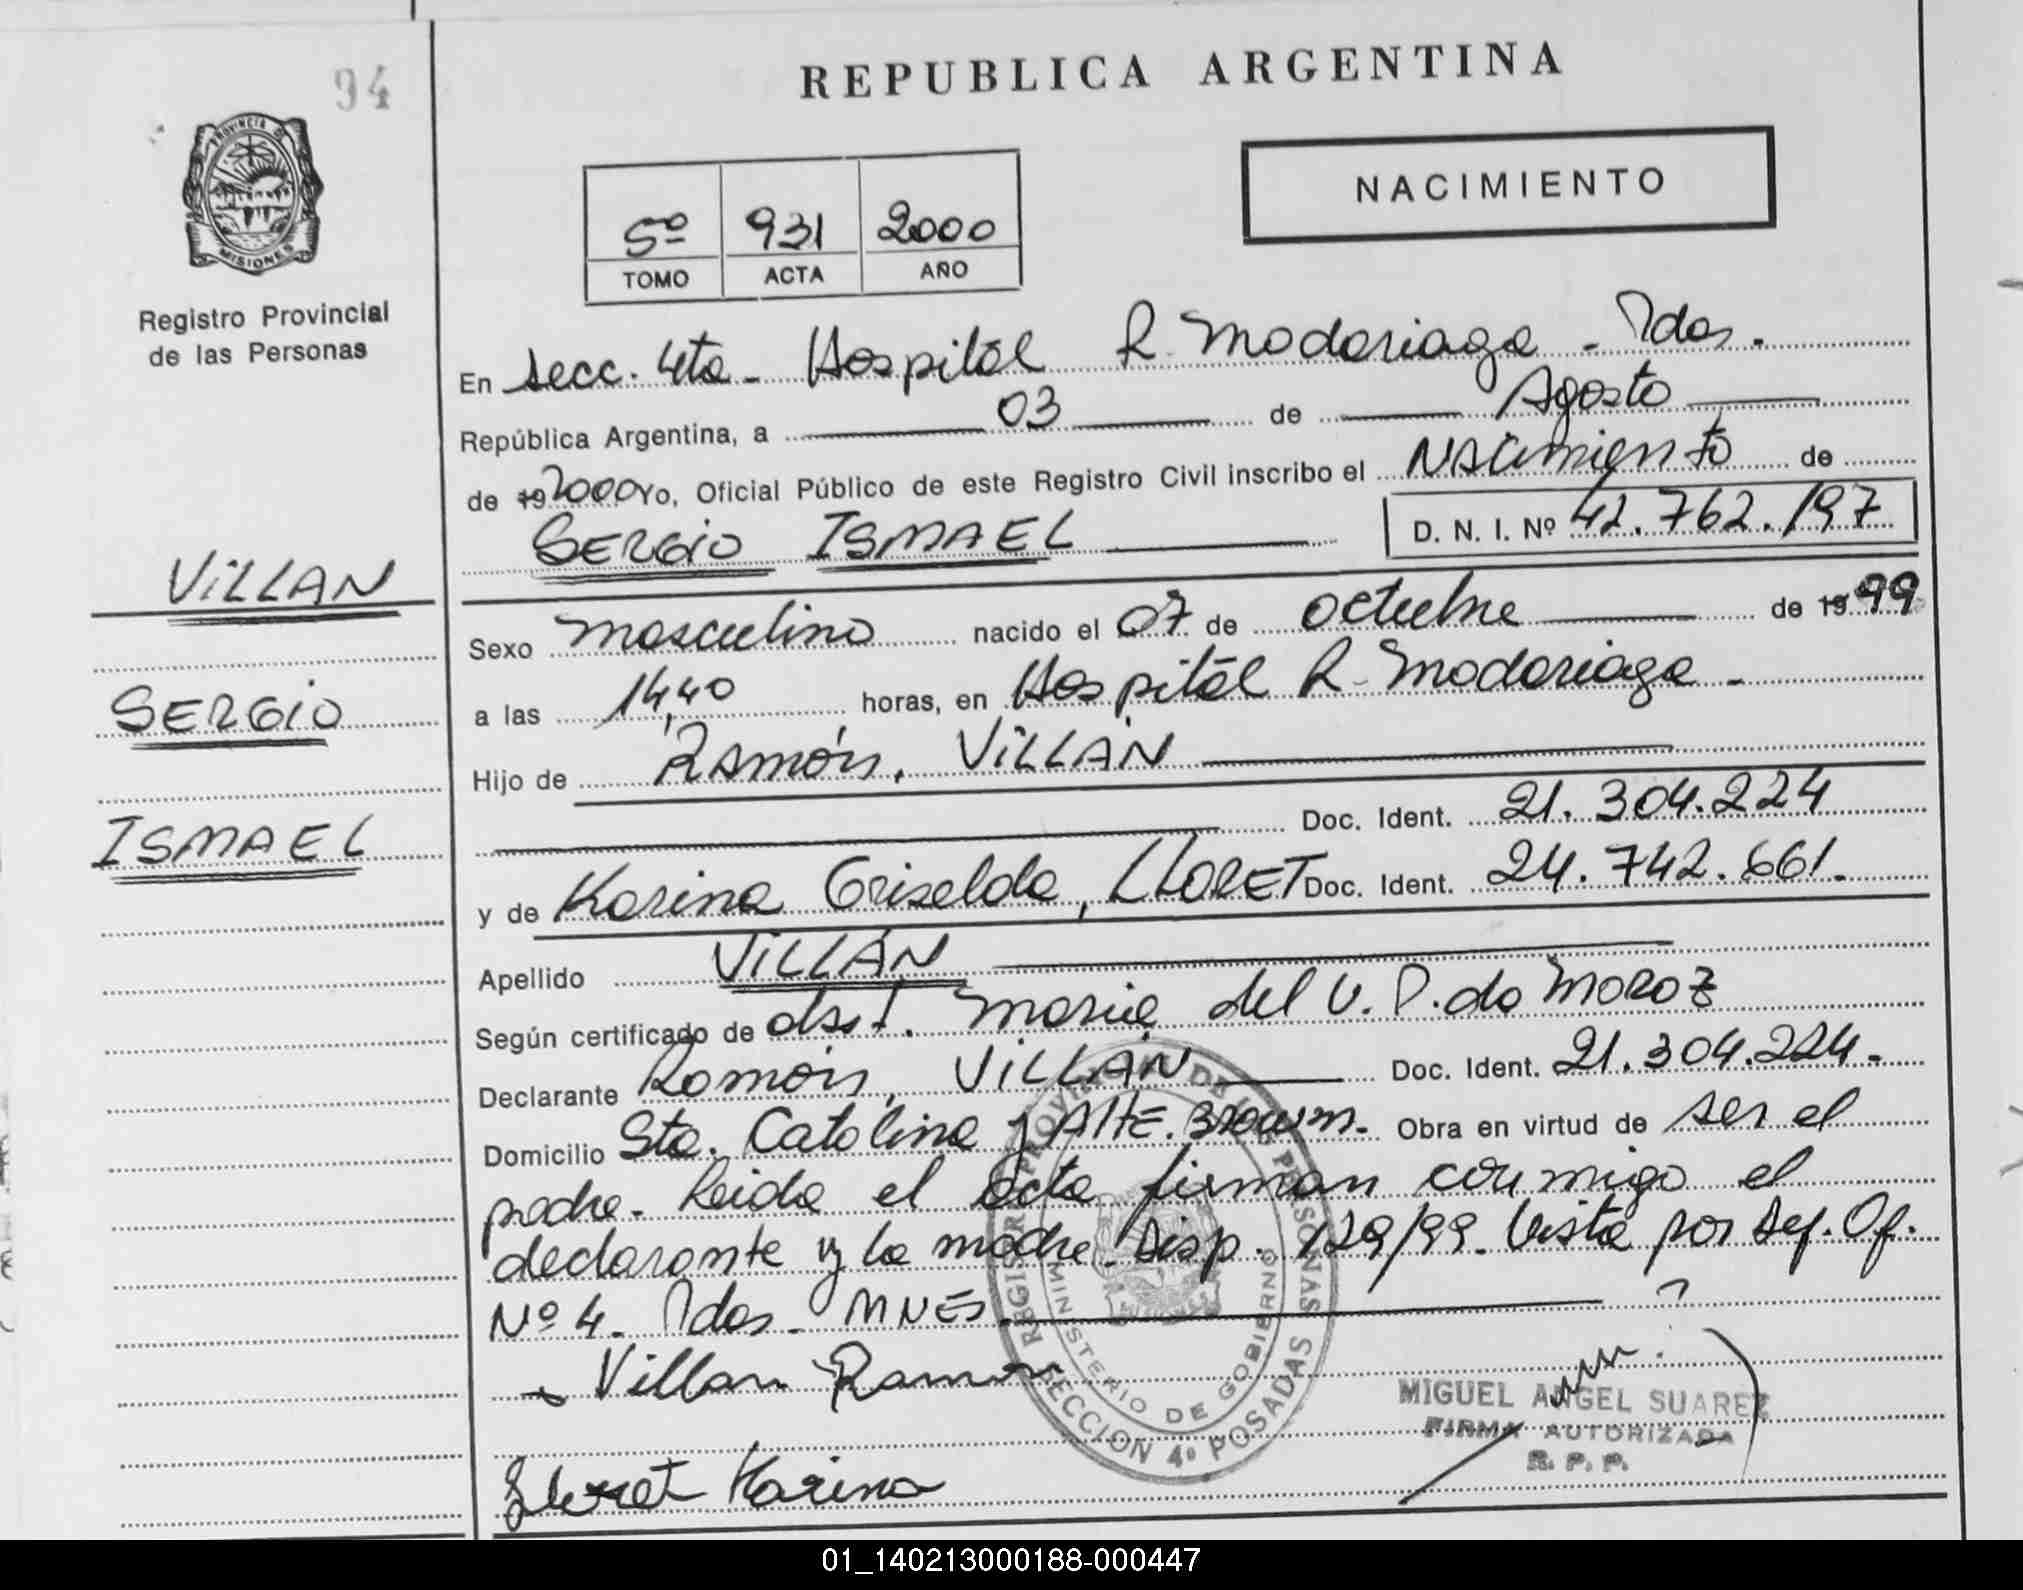 94
REPUBLICA ARGENTINA
PROVINCIA DE
MISIONES
Registro Provincial
de las Personas
5º 931 2000
TOMO ACTA AÑO
NACIMIENTO
En Secc. 4ta - Hospitál R. Madariaga - Pdas.
República Argentina, a 03 de Agosto
de 19 2000 Yo, Oficial Público de este Registro Civil inscribo el NACimiento de
SERGiO ISMAEL
D. N. I. Nº 42.762.197
VILLAN
SERGiO
ISMAEL
Sexo masculino nacido el 07 de octubre de 1999
a las 14,40 horas, en Hospitál R. Madariaga -
Hijo de RAMóN, ViLLÁN
Doc. Ident. 21.304.224
y de Karina Griselda, LLORET Doc. Ident. 24.742.661.
Apellido ViLLÁN
Según certificado de obst. María del V. P. do MOROZ
Declarante Ramón, ViLLÁN Doc. Ident. 21.304.224.-
Domicilio Sta. Catalina y AltE. Brown. Obra en virtud de ser el
padre. Leida el acta firman conmigo el
declarante y la madre. Disp. 129/99. Vista por Sey. Of.
Nº 4. Pdas. MNES.
Villan Ramon
Lloret Karina
REGISTRO PROVINCIAL DE LAS PERSONAS
MINISTERIO DE GOBIERNO
SECCION 4º POSADAS
MIGUEL ANGEL SUAREZ
FIRMA AUTORIZADA
R. P. P.
01_140213000188-000447